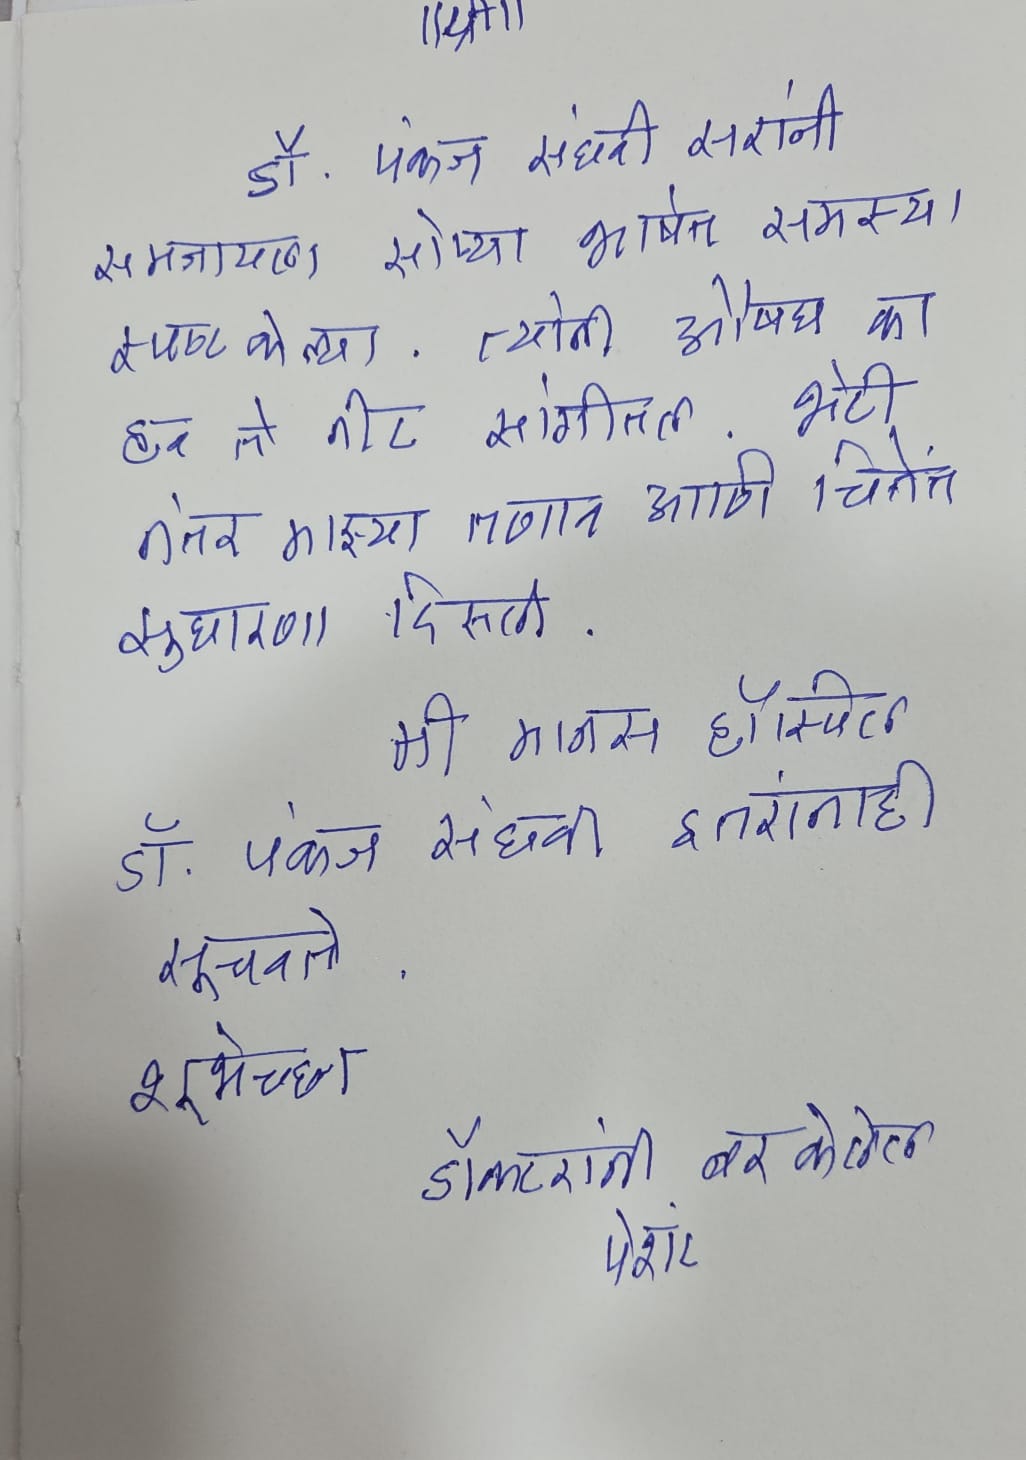 ॥श्री॥
डॉ. पंकज संघवी सरांनी
समजायला सोप्या भाषेत समस्या
स्पष्ट केल्या. त्यांनी औषध का
हव ते नीट सांगीतल. भेटी
नंतर माझ्या तणात आणि चिंतेत
सुधारणा दिसली.
मी मानस हॉस्पिटल
डॉ. पंकज संघवी इतरांनाही
सूचवतो.
शूभेच्छा
डॉक्टरांनी बर केलेल
पेशंट